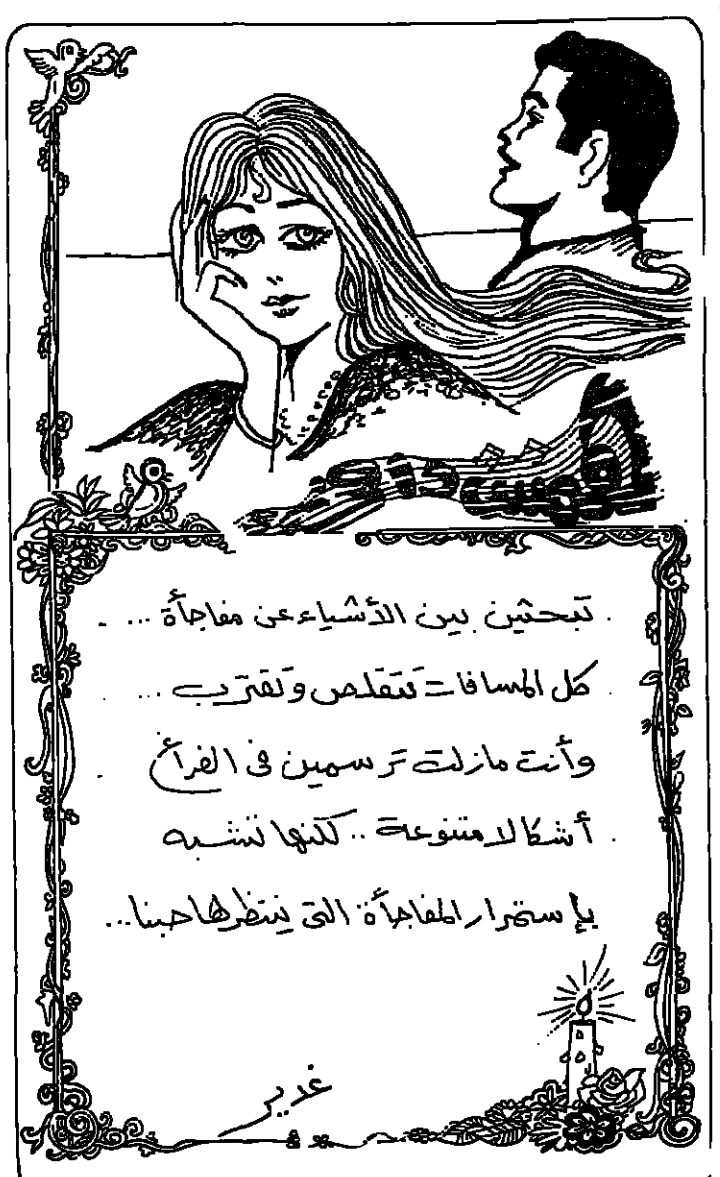 تبحثين بين الأشياء عن مفاجأة ...
كل المسافات تتقلص وتقترب ...
وأنت مازلت ترسمين في الفراغ
أشكالا متنوعة .. لكنها تشبه
بإستمرار المفاجأة التي ينتظرها حبنا ...
غدير